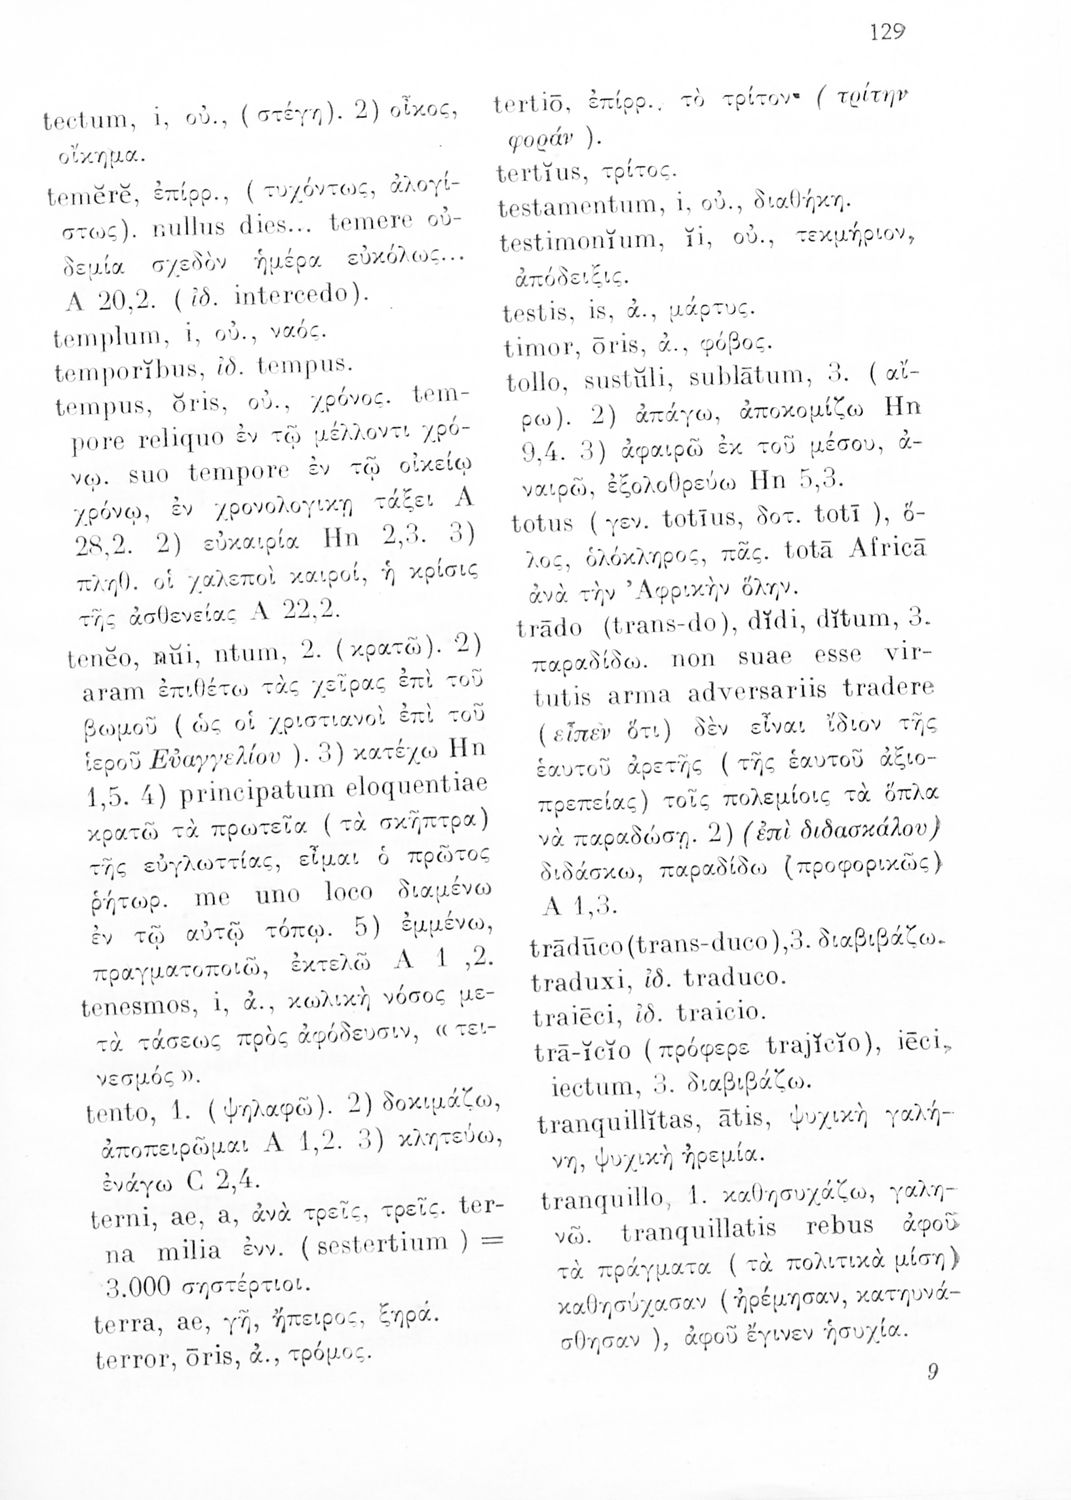 129
tectum, i, οὐ., ( στέγη). 2) οἶκος,
οἴκημα.
temĕrĕ, ἐπίρρ., ( τυχόντως, ἀλογί-
στως). nullus dies... temere οὐ-
δεμία σχεδὸν ἡμέρα εὐκόλως...
A 20,2. ( ἰδ. intercedo).
templum, i, οὐ., ναός.
temporĭbus, ἰδ. tempus.
tempus, ŏris, οὐ., χρόνος. tem-
pore reliquo ἐν τῷ μέλλοντι χρό-
νῳ. suo tempore ἐν τῷ οἰκείῳ
χρόνῳ, ἐν χρονολογικῃ τάξει A
28,2. 2) εὐκαιρία Hn 2,3. 3)
πληθ. οἱ χαλεποὶ καιροί, ἡ κρίσις
τῆς ἀσθενείας A 22,2.
tenĕo, nŭi, ntum, 2. ( κρατῶ). 2)
aram ἐπιθέτω τὰς χεῖρας ἐπὶ τοῦ
βωμοῦ ( ὡς οἱ χριστιανοὶ ἐπὶ τοῦ
ἱεροῦ Εὐαγγελίου ). 3) κατέχω Hn
1,5. 4) principatum eloquentiae
κρατῶ τὰ πρωτεῖα ( τὰ σκῆπτρα)
τῆς εὐγλωττίας, εἶμαι ὁ πρῶτος
ῥήτωρ. me uno loco διαμένω
ἐν τῷ αὐτῷ τόπῳ. 5) ἐμμένω,
πραγματοποιῶ, ἐκτελῶ A 1 ,2.
tenesmos, i, ἀ., κωλικὴ νόσος με-
τὰ τάσεως πρὸς ἀφόδευσιν, « τει-
νεσμός ».
tento, 1. ( ψηλαφῶ). 2) δοκιμάζω,
ἀποπειρῶμαι A 1,2. 3) κλητεύω,
ἐνάγω C 2,4.
terni, ae, a, ἀνὰ τρεῖς, τρεῖς. ter-
na milia ἐνν. ( sestertium ) =
3.000 σηστέρτιοι.
terra, ae, γῆ, ἤπειρος, ξηρά.
terror, ōris, ἀ., τρόμος.
tertiō, ἐπίρρ., τὸ τρίτον· ( τρίτην
φοράν ).
tertĭus, τρίτος.
testamentum, i, οὐ., διαθήκη.
testimonĭum, ĭi, οὐ., τεκμήριον,
ἀπόδειξις.
testis, is, ἀ., μάρτυς.
timor, ōris, ἀ., φόβος.
tollo, sustŭli, sublātum, 3. ( αἴ-
ρω). 2) ἀπάγω, ἀποκομίζω Hn
9,4. 3) ἀφαιρῶ ἐκ τοῦ μέσου, ἀ-
ναιρῶ, ἐξολοθρεύω Hn 5,3.
totus ( γεν. totīus, δοτ. totī ), ὅ-
λος, ὁλόκληρος, πᾶς. totā Africā
ἀνὰ τὴν Ἀφρικὴν ὅλην.
trādo (trans-do), dĭdi, dĭtum, 3.
παραδίδω. non suae esse vir-
tutis arma adversariis tradere
( εἶπεν ὅτι) δὲν εἶναι ἴδιον τῆς
ἑαυτοῦ ἀρετῆς ( τῆς ἑαυτοῦ ἀξιο-
πρεπείας) τοῖς πολεμίοις τὰ ὅπλα
νὰ παραδώσῃ. 2) (ἐπὶ διδασκάλου)
διδάσκω, παραδίδω (προφορικῶς)
A 1,3.
trādūco (trans-duco),3. διαβιβάζω.
traduxi, ἰδ. traduco.
traiēci, ἰδ. traicio.
trā-ĭcĭo ( πρόφερε trajĭcĭo), iēci,
iectum, 3. διαβιβάζω.
tranquillĭtas, ātis, ψυχικὴ γαλή-
νη, ψυχικὴ ἠρεμία.
tranquillo, 1. καθησυχάζω, γαλη-
νῶ. tranquillatis rebus ἀφοῦ
τὰ πράγματα ( τὰ πολιτικὰ μίση)
καθησύχασαν ( ἠρέμησαν, κατηυνά-
σθησαν ), ἀφοῦ ἔγινεν ἡσυχία.
9